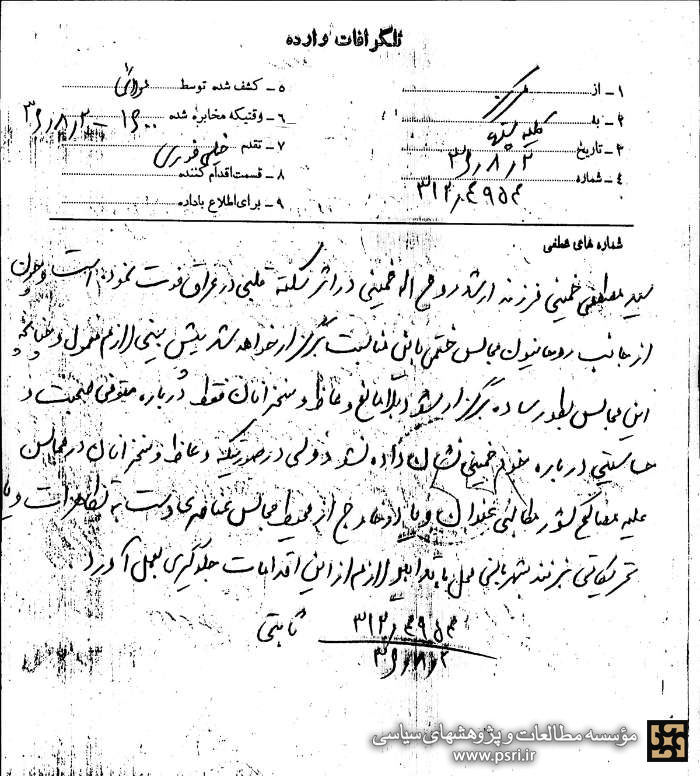 تلگرافات وارده
۱ـ از مرکز
۲ـ به کلیه
۳ـ تاریخ ۳۶٫۸٫۲
۴ـ شماره ۳۱۲٫۴۹۵۴
۵ـ کشف شده توسط
۶ـ وقتیکه مخابره شده ۱۶۰۰ - ۳۶٫۸٫۳
۷ـ تقدم خیلی فوری
۸ـ قسمت اقدام کننده
۹ـ برای اطلاع باداده
شماره های عطفی
سید مصطفی خمینی فرزند ارشد روح اله خمینی در اثر سکته قلبی در عراق فوت نموده است و چون
از جانب روحانیون مجالس ختمی باین مناسبت برگزار خواهد شد پیش بینی لازم معمول و چنانچه
این مجالس بطور ساده برگزار شود بلامانع و وعاظ و سخنرانان فقط درباره متوفی صحبت و
حساسیتی درباره خود خمینی نشان داده نشود ولی در صورتیکه وعاظ و سخنرانان در مجالس
علیه مصالح کشور مطالبی عنوان و یا در خارج از محیط مجالس عناصری دست به تظاهرات و یا
تحریکاتی بزنند شهربانی محل باید لازم از این اقدامات جلوگیری بعمل آورد.
۳۱۲٫۴۹۵۴ ثابتی
۳۶٫۸٫۲
مؤسسه مطالعات و پژوهشهای سیاسی
www.psri.ir